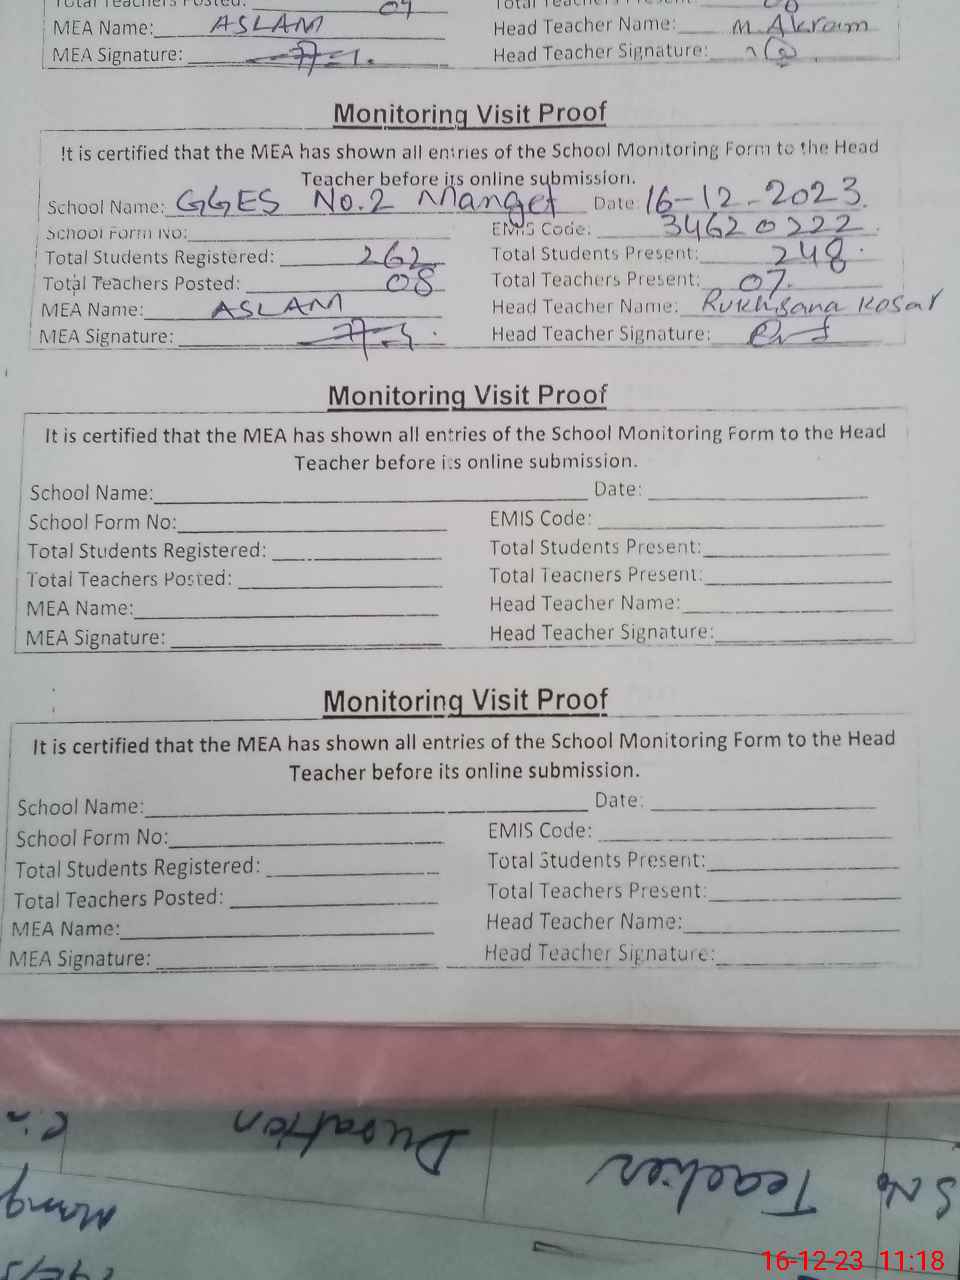 Total Teachers Posted: 04 Total Teachers Present:
MEA Name: ASLAM Head Teacher Name: M. Akram
MEA Signature: Head Teacher Signature:
Monitoring Visit Proof
It is certified that the MEA has shown all entries of the School Monitoring Form to the Head
Teacher before its online submission.
School Name: GGES No.2 Manget Date: 16-12-2023.
School Form No: EMIS Code: 34620222
Total Students Registered: 262 Total Students Present: 248
Total Teachers Posted: 08 Total Teachers Present: 07
MEA Name: ASLAM Head Teacher Name: Rukhsana Kosar
MEA Signature: Head Teacher Signature:
Monitoring Visit Proof
It is certified that the MEA has shown all entries of the School Monitoring Form to the Head
Teacher before its online submission.
School Name: Date:
School Form No: EMIS Code:
Total Students Registered: Total Students Present:
Total Teachers Posted: Total Teachers Present:
MEA Name: Head Teacher Name:
MEA Signature: Head Teacher Signature:
Monitoring Visit Proof
It is certified that the MEA has shown all entries of the School Monitoring Form to the Head
Teacher before its online submission.
School Name: Date:
School Form No: EMIS Code:
Total Students Registered: Total Students Present:
Total Teachers Posted: Total Teachers Present:
MEA Name: Head Teacher Name:
MEA Signature: Head Teacher Signature:
S No Teacher Duration
16-12-23 11:18